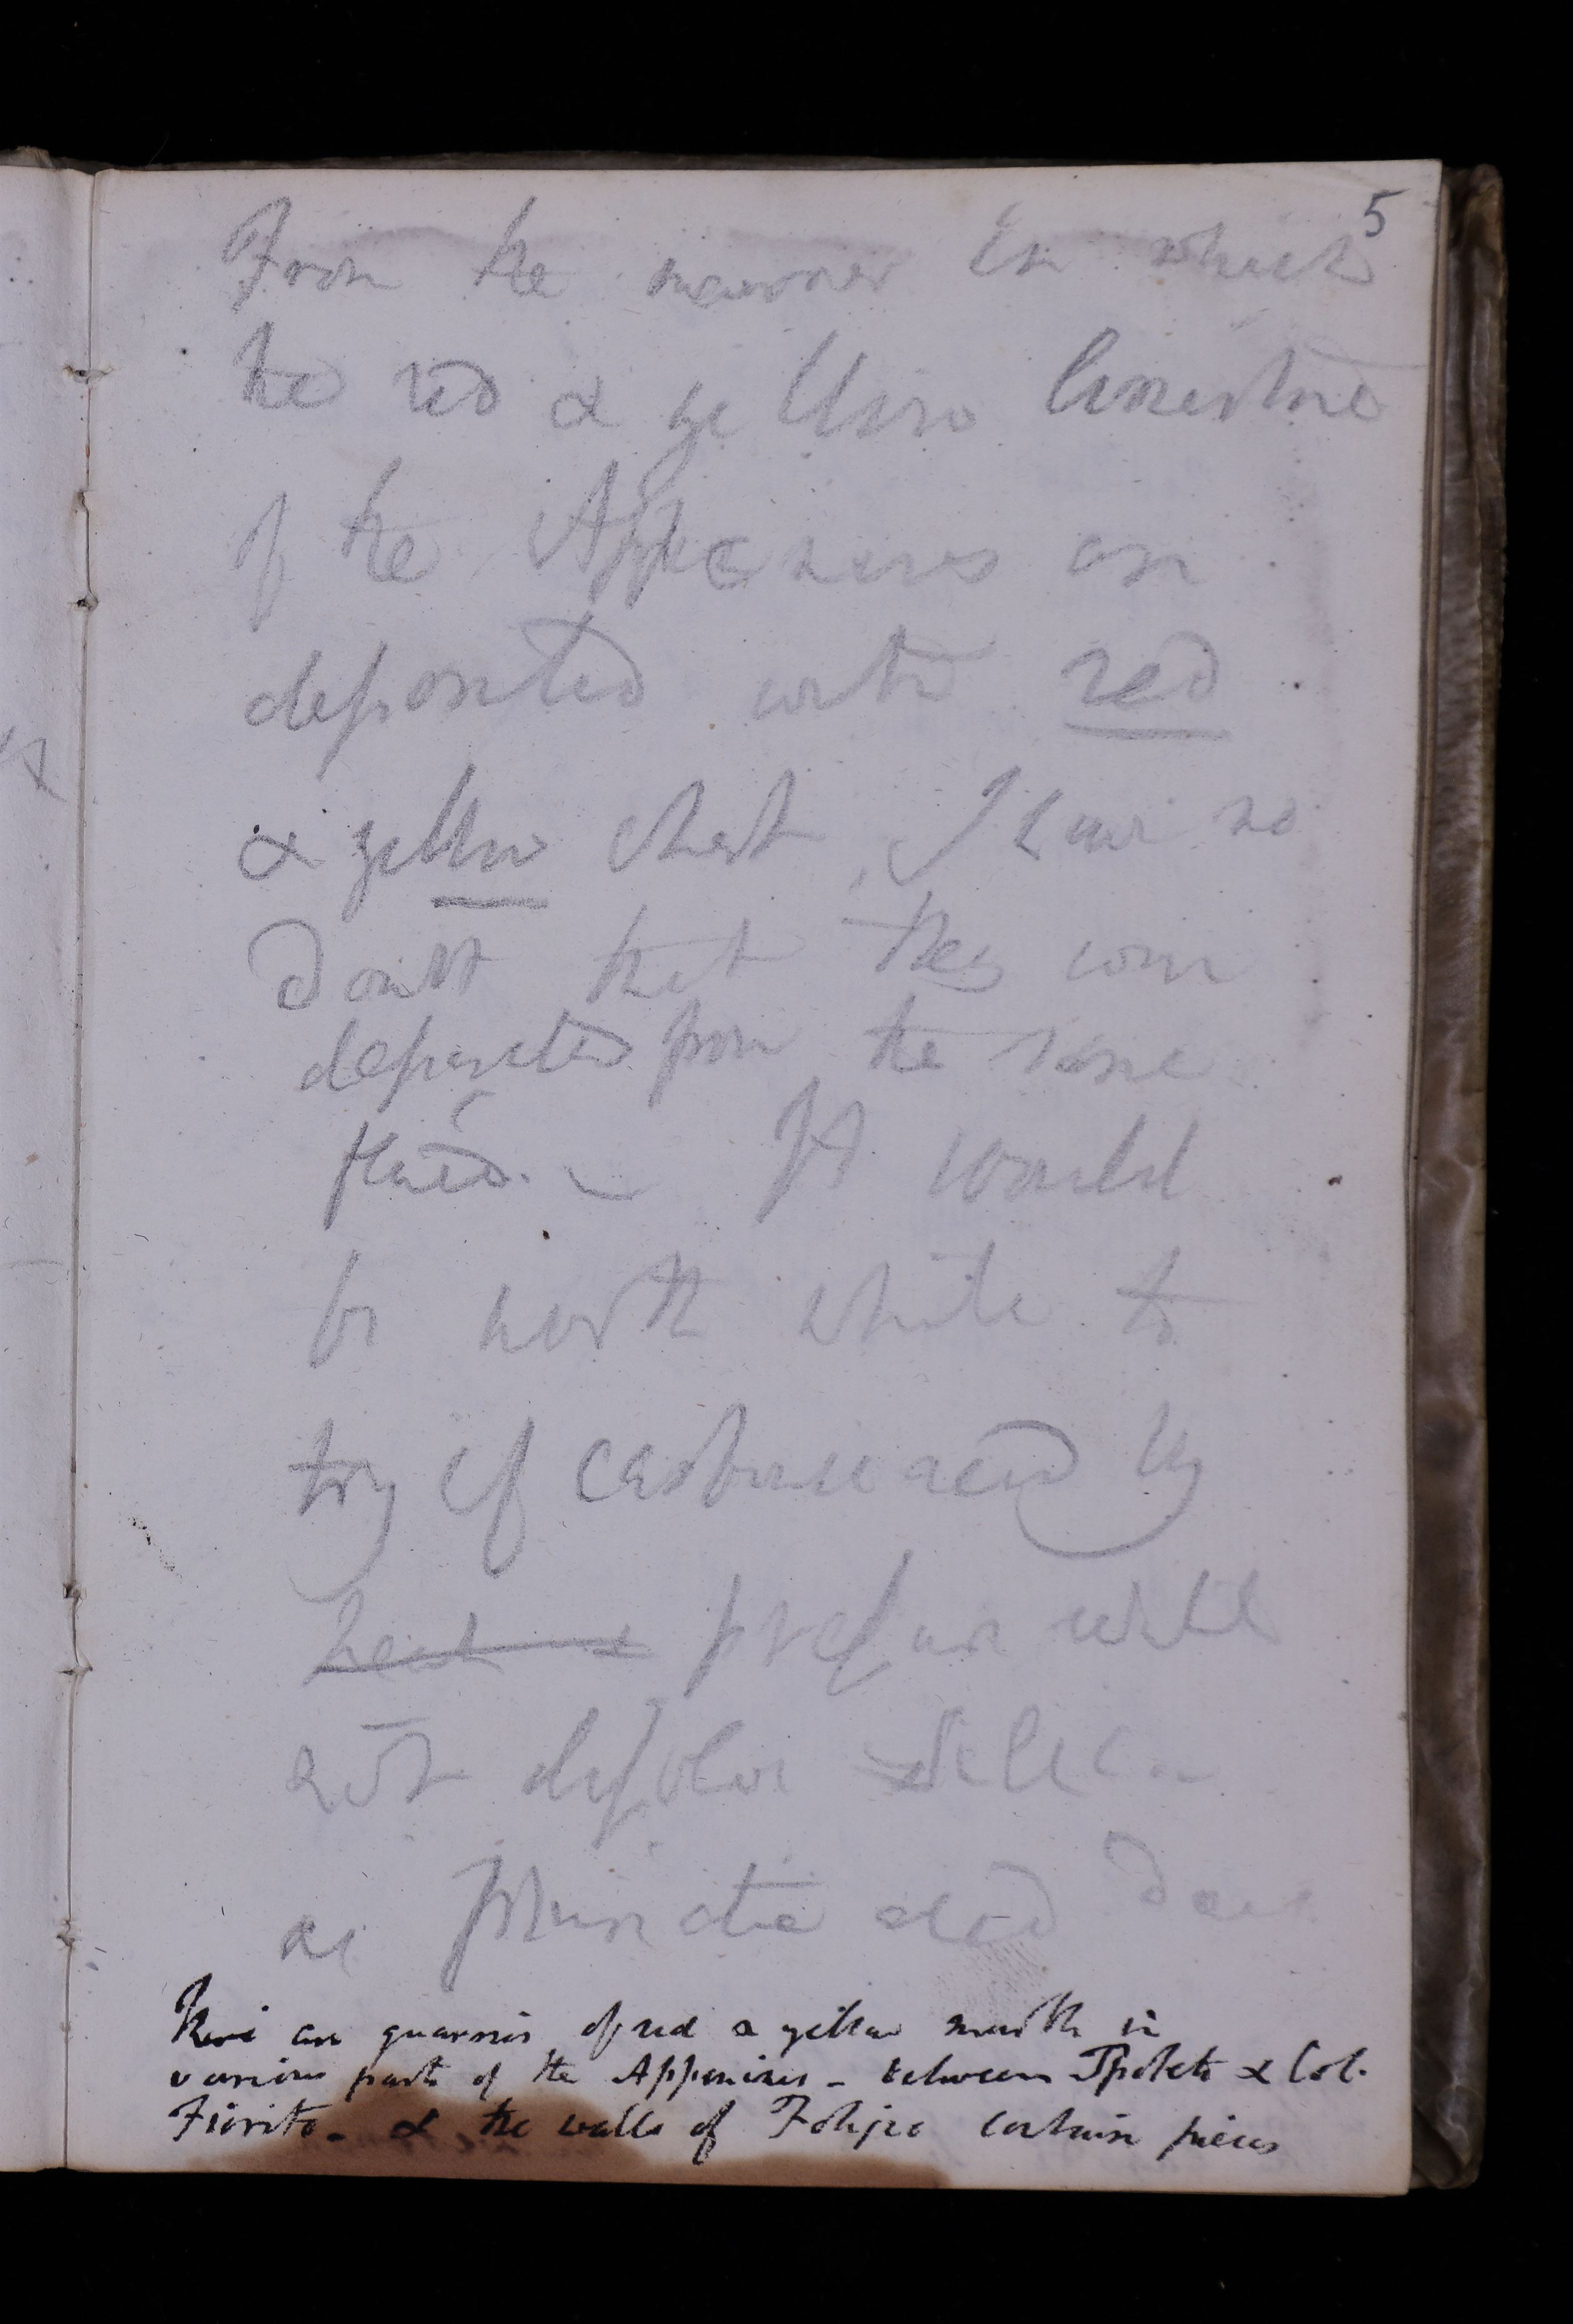 5
From the manner in which
the red & yellow limestone
of the Appenines are
deposited with red
& yellow chert, I have no
doubt that they were
deposited from the same
fluid. — It would
be worth while to
try if carbonic acid by
heat & pressure will
not dissolve Silica
as Muriatic acid does
There are quarries of red & yellow marble in
various parts of the Appenines - between Spoleto & Col.
Fiorito - & the walls of Foligno contain pieces